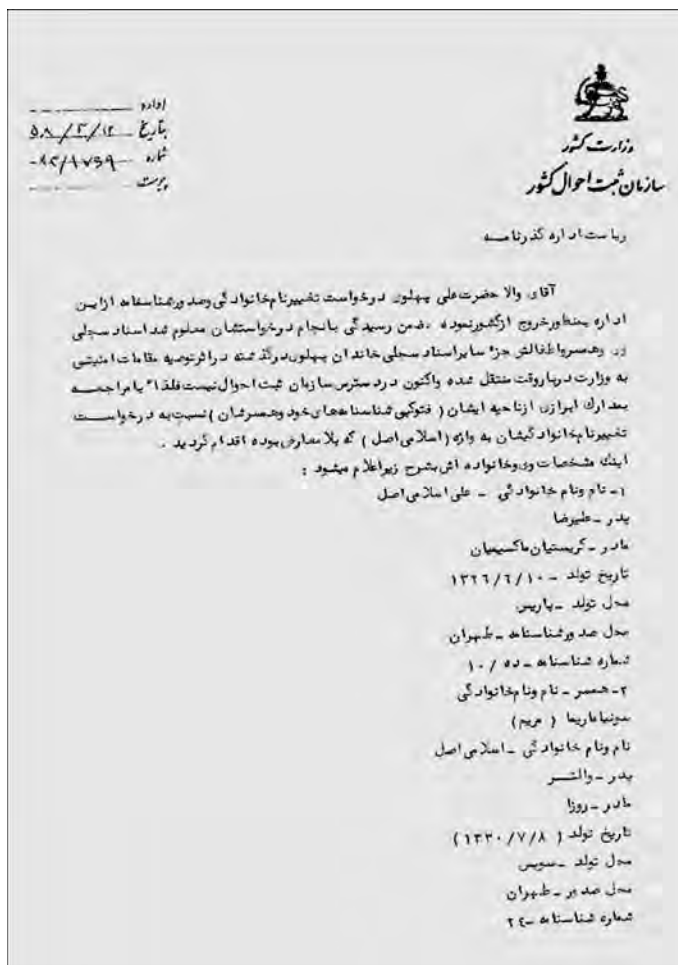 وزارت کشور
سازمان ثبت احوال کشور
اداره
بتاریخ ۵۸/۳/۱۲
شماره
پیوست
ریاست اداره گذرنامه
آقای والا حضرت علی پهلوی درخواست تغییرنام خانوادگی وصدورشناسنامه ازاین
اداره بمنظورخروج ازکشورنموده ،ضمن رسیدگی بانجام درخواستشان معلوم شد اسناد سجلی
وی وهمسرواطفالش جزء سایراسناد سجلی خاندان پهلوی درگذشته دراثرتوصیه مقامات امنیتی
به وزارت درباروقت منتقل شده واکنون دردسترس سازمان ثبت احوال نیست فلذا بامراجعه
بمدارک ابرازی ازناحیه ایشان ( فتوکپی شناسنامه های خود وهمسرشان ) نسبت به درخواست
تغییرنام خانوادگیشان به واژه (اسلامی اصل ) که بلامعارض بوده اقدام گردید .
اینک مشخصات وی وخانواده اش بشرح زیراعلام میشود :
۱- نام ونام خانوادگی - علی اسلامی اصل
پدر - علیرضا
مادر - کریستیان
تاریخ تولد - ۱۳۲۶/۶/۱۰
محل تولد - پاریس
محل صدورشناسنامه - طهران
شماره شناسنامه - ده / ۱۰
۲- همسر - نام ونام خانوادگی
سونیاماریا ( مریم )
نام ونام خانوادگی - اسلامی اصل
پدر - والتر
مادر - روزا
تاریخ تولد ( ۱۳۳۰/۷/۸ )
محل تولد - سویس
محل صدور - طهران
شماره شناسنامه - ۲٤